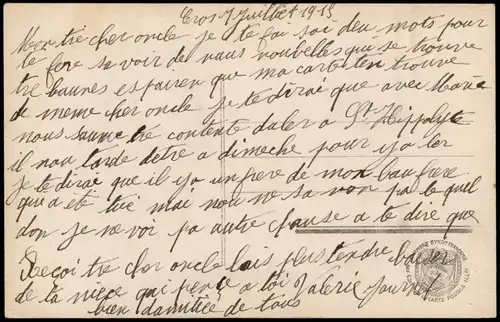 Cros 7 Juillet 1915
Mon tre cher oncle je te fai soi deu mots pour
te fere savoir de nous nouvelles qui se trouve
tre baunes esperen que ma carte ten trouve
de meme cher oncle je te dirae que avec Marie
nous saume tre contente daler a St Hippolyte
il nou tarde detre a dimeche pour y a ler
je te dirae que il y a un frere de mon bau frere
que a été tué mae nou ne savon pa le quel
don je ne voi pa autre chause a te dire que
Recoi tre cher oncle lais plus tendre baiser
de ta niece qui pence a toi Valerie Journet
bien damitiée de tous
CARTE POSTALE